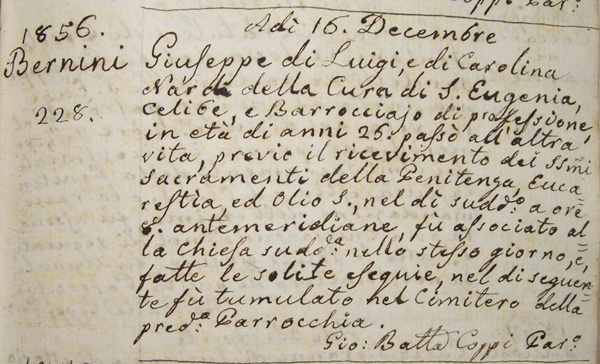 Par.º
1856.
Adì 16. Decembre
Bernini
Giuseppe di Luigi, e di Carolina
Nardi della Cura di S. Eugenia,
228.
Celibe, e Barrocciajo di professione,
in età di anni 26. passò all'altra
vita, previo il ricevimento dei SSmi
Sacramenti della Penitenza, Euca=
restia, ed Olio S., nel dì sudd.º a ore
antemeridiane, fù associato al=
la Chiesa sudd.ª nello stesso giorno, e,
fatte le solite esequie, nel dì seguen=
te fù tumulato nel Cimitero della
pred.ª Parrocchia.
Gio: Batta Coppi Par.º